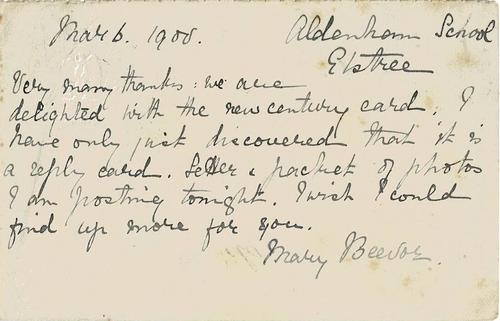 Mar 6. 1900. Aldenham School
Elstree
Very many thanks: we are
delighted with the new century card. I
have only just discovered that it is
a reply card. Letter & packet of photos
I am posting tonight. I wish I could
find up more for you.
Mary Beevor.